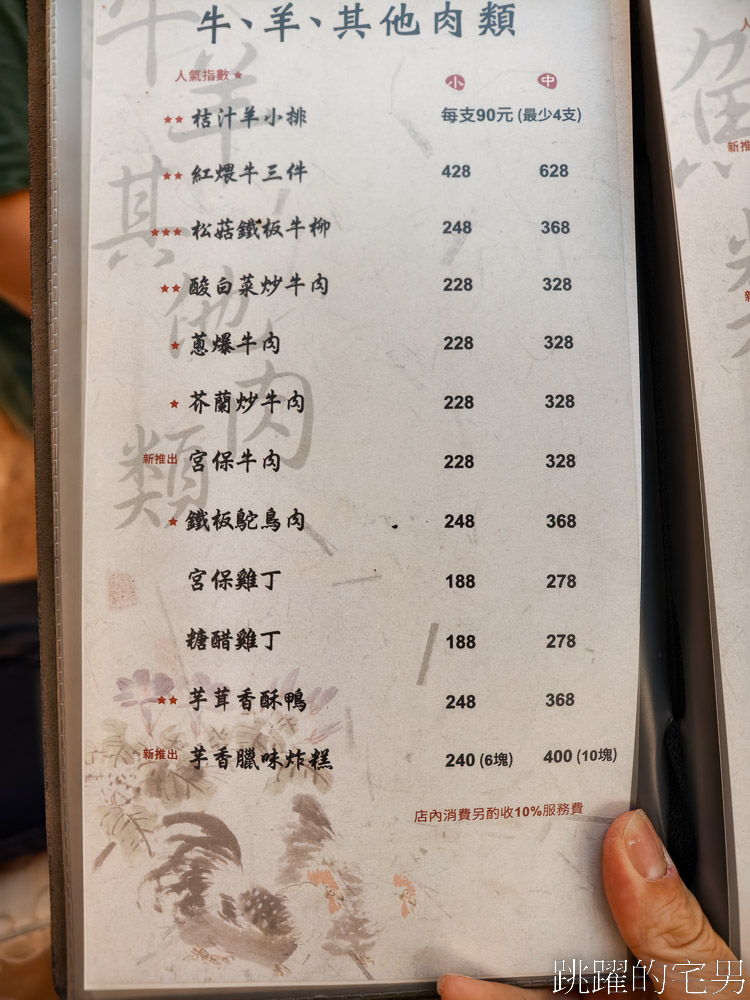 牛、羊、其他肉類
人氣指數 ★ 小 中
★★ 桔汁羊小排 每支90元 (最少4支)
★★ 紅煨牛三件 428 628
★★★ 松菇鐵板牛柳 248 368
★★ 酸白菜炒牛肉 228 328
★ 蔥爆牛肉 228 328
★ 芥蘭炒牛肉 228 328
新推出 宮保牛肉 228 328
★ 鐵板鴕鳥肉 248 368
宮保雞丁 188 278
糖醋雞丁 188 278
★★ 芋茸香酥鴨 248 368
新推出 芋香臘味炸糕 240 (6塊) 400 (10塊)
店內消費另酌收10%服務費
牛羊其他肉類
魚
新推
跳躍的宅男